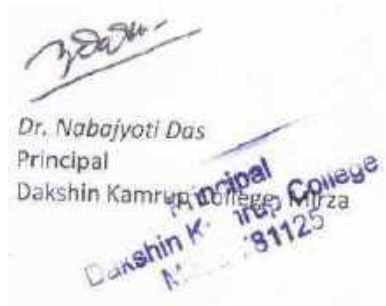 Dr. Nabajyoti Das
Principal
Dakshin Kamrup College, Mirza
Principal
Dakshin K rup College
M 781125